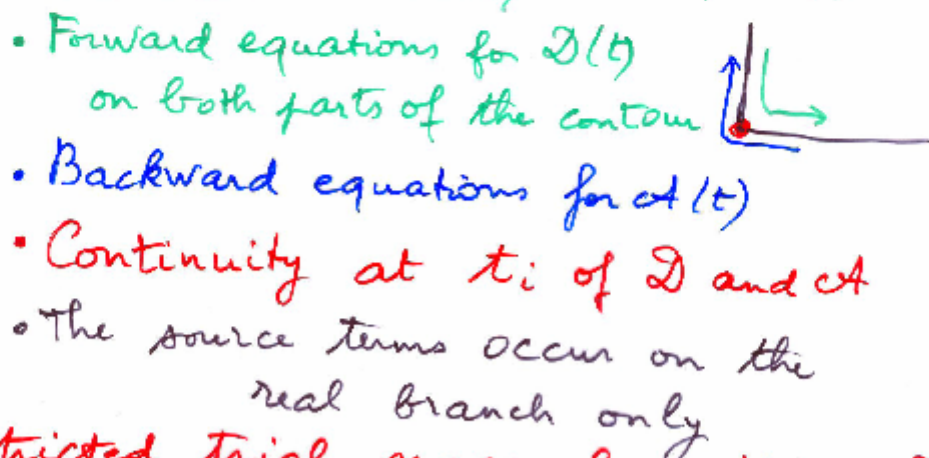 • Forward equations for D(t)
on both parts of the contour
• Backward equations for A(t)
• Continuity at ti of D and A
• The source terms occur on the
real branch only
trial